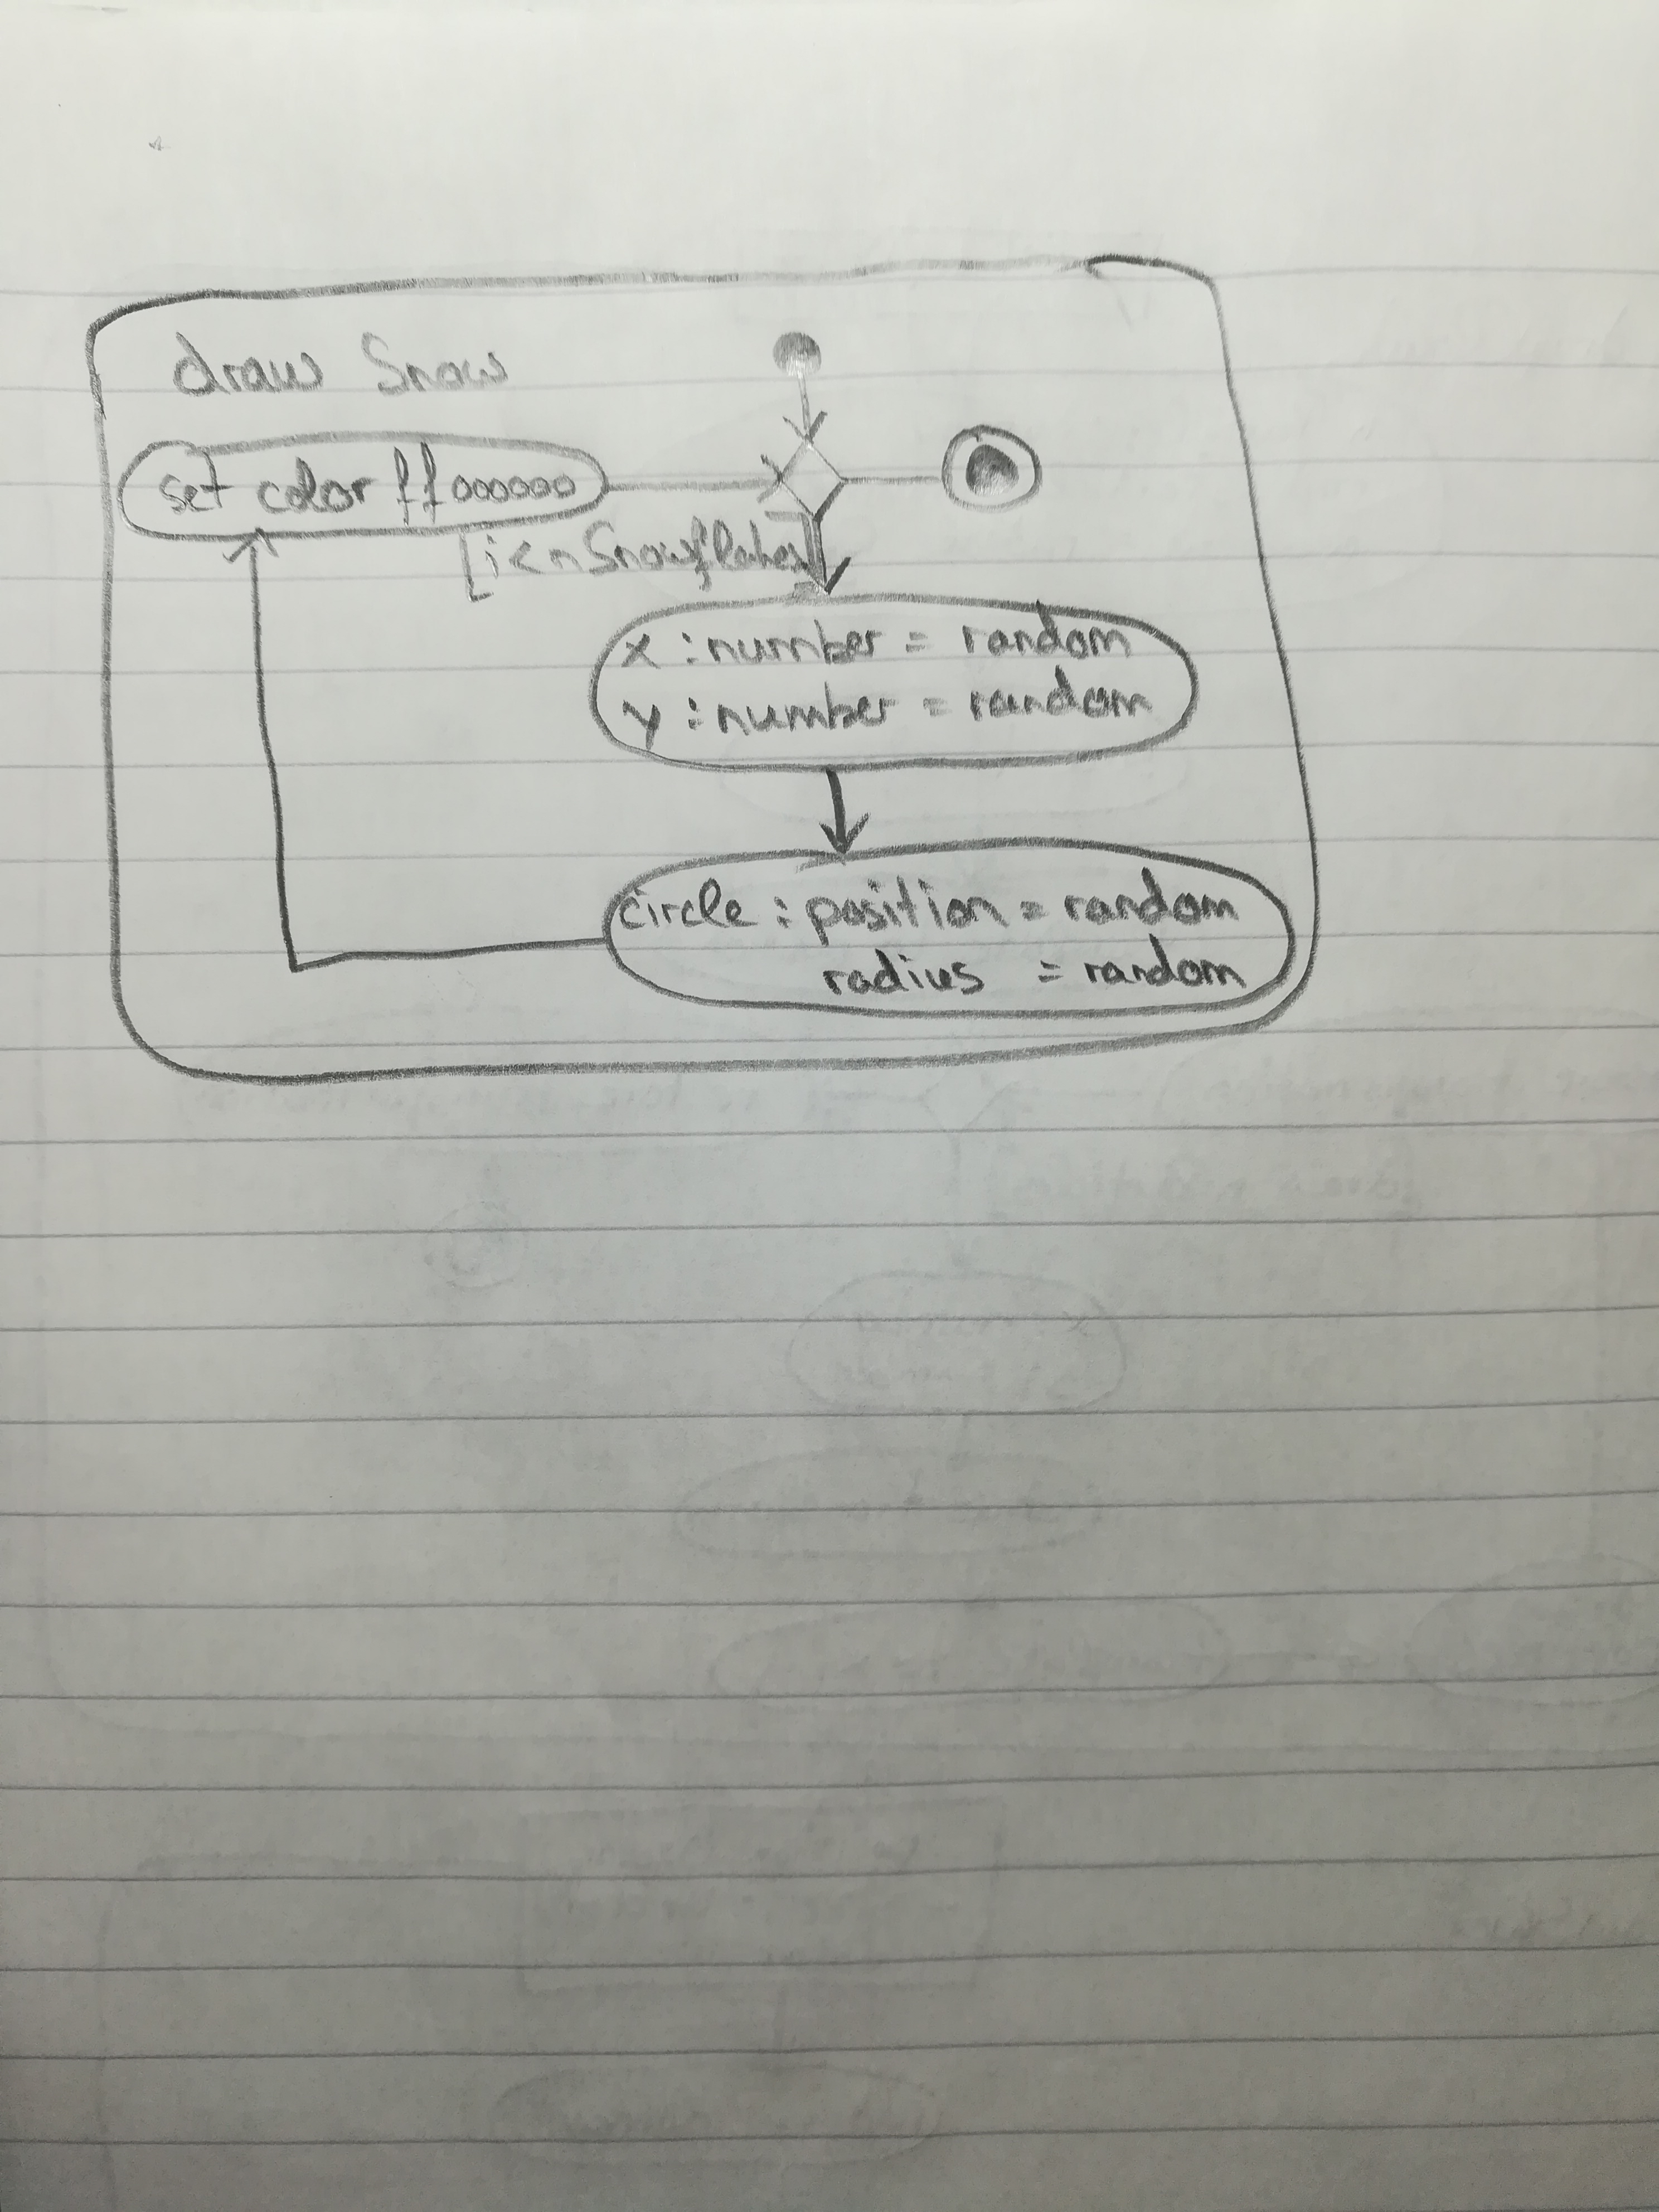 draw Snow
set color ff000000
[i<nSnowflakes]
x : number = random
y : number = random
circle : position = random
radius = random